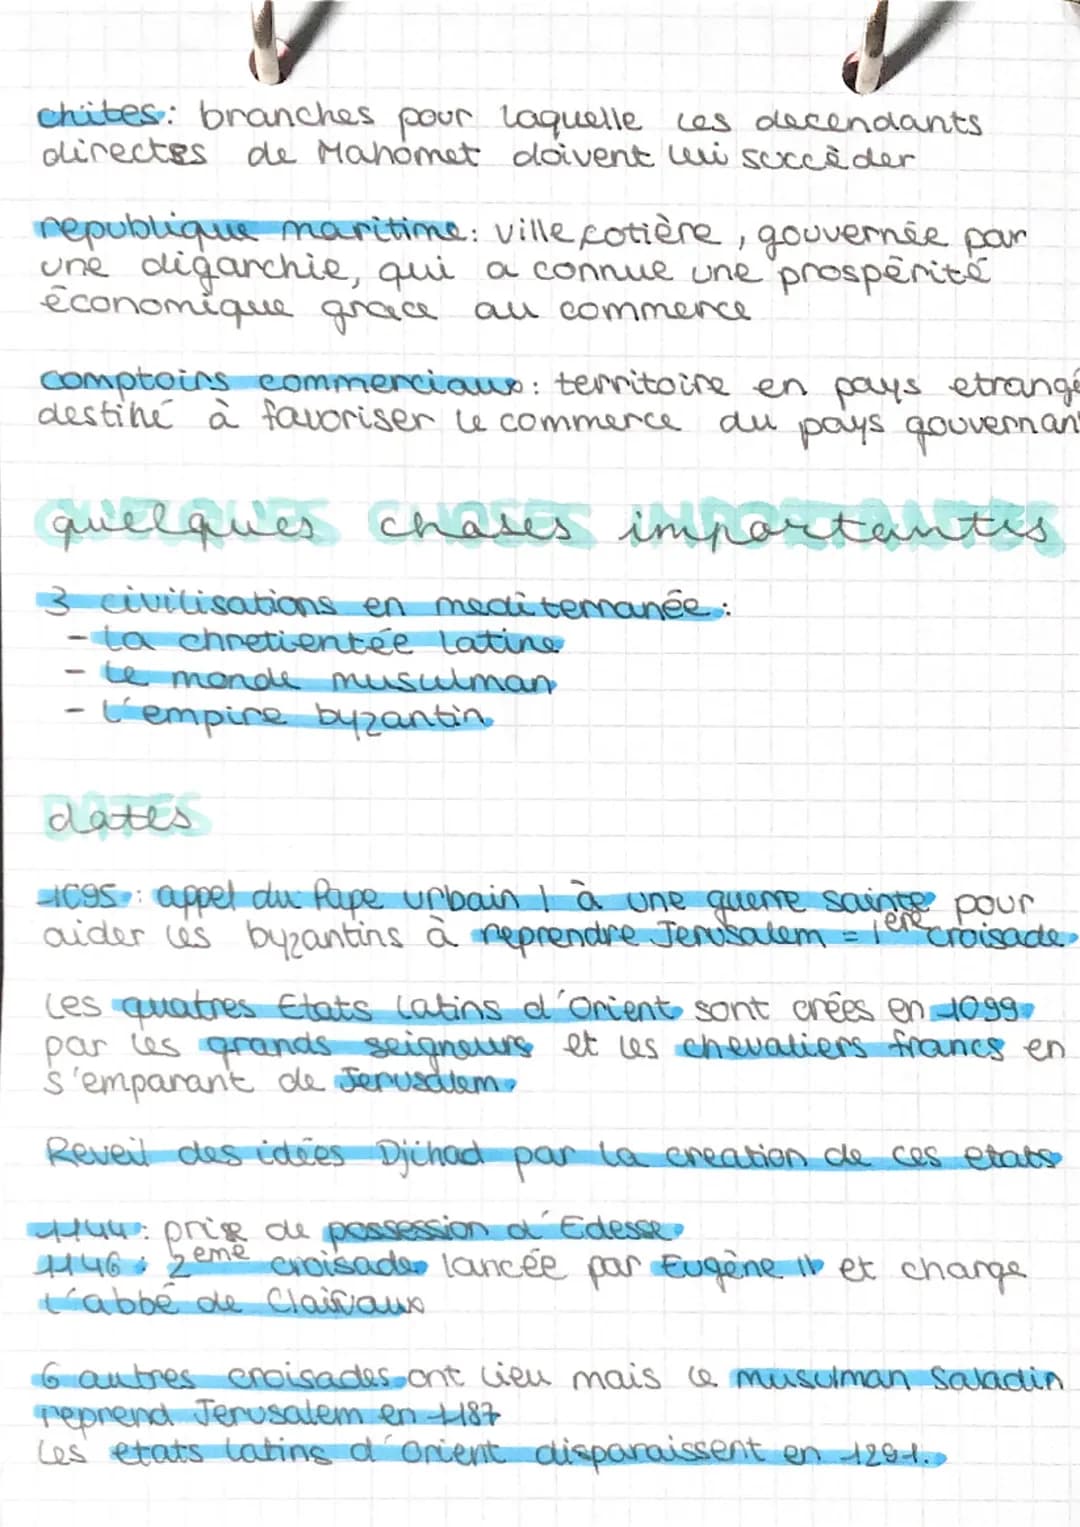 chiites : branches pour laquelle les decendants
directes de Mahomet doivent lui succéder
republique maritime : ville cotière, gouvernée par
une oligarchie, qui a connue une prospérité
économique grace au commerce
comptoirs commerciaux : territoire en pays etrangé
destiné à favoriser le commerce du pays gouvernant
QUELQUES CHOSES IMPORTANTES
quelques choses importantes
3 civilisations en mediterranée :
- la chretientée latine
- le monde musulman
- l'empire byzantin
DATES
dates
1095 : appel du Pape urbain I à une guerre sainte pour
aider les byzantins à reprendre Jerusalem = 1ère croisade
Les quatres Etats Latins d'Orient sont crées en 1099
par les grands seigneurs et les chevaliers francs en
s'emparant de Jerusalem.
Reveil des idées Djihad par la creation de ces etats
1144 : prise de possession d'Edesse
1146 : 2eme croisade lancée par Eugène II et charge
l'abbé de Clairvaux
6 autres croisades ont lieu mais le musulman Saladin
reprend Jerusalem en 1187
Les etats latins d'Orient disparaissent en 1291.